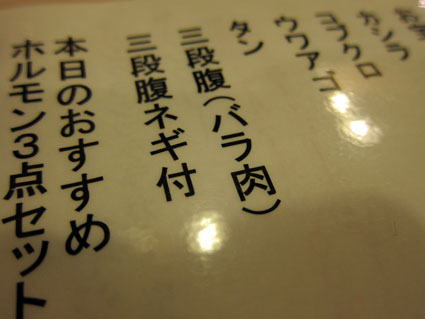 カシラ
コブクロ
ウワアゴ
タン
三段腹(バラ肉)
三段腹ネギ付
本日のおすすめ
ホルモン3点セット